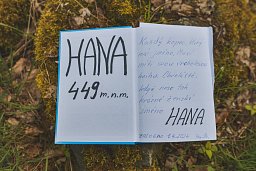 HANA
449 m.n.m.
Každý kopec, který
má jméno,
měl svou vrcholovou
knihu. Obzvlášť,
když nese tak
krásné ženské
jméno HANA